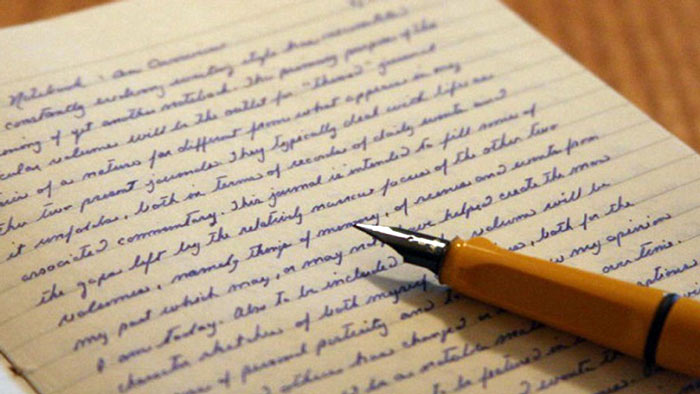 Notebook: An Overview
constantly evolving writing style has
of yet another notebook. The primary purpose of the
volume will be the outlet for "themed" journal
of a nature far different from what appears in my
two present journals. They typically deal with life as
it unfolds, both in terms of records of daily events and
associated commentary. This journal is intended to fill some of
the gaps left by the relatively narrow focus of the other two
volumes, namely those of memory, of scenes and events from
my past which may, or may not, have helped create the man
I am today. Also to be included volume will be
character sketches of both myself , both for the
of personal posterity and my opinion
others have changed over time.
be
to be featured in